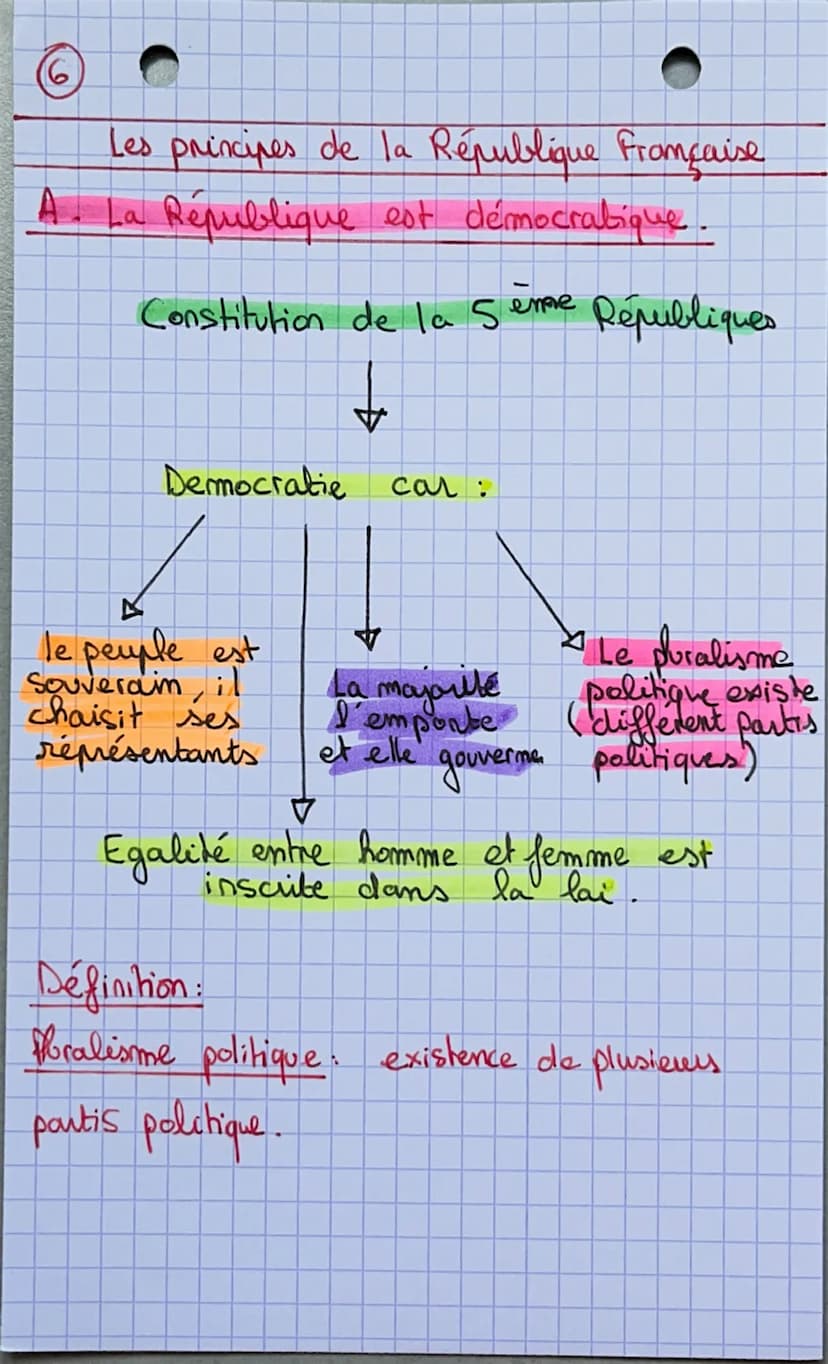 6
Les principes de la République Française
A. La République est démocratique.
Constitution de la 5ème Républiques
Democratie car :
le peuple est
souverain, il
chaisit ses
représentants
La majorité
l'emporte
et elle gouverne
Le pluralisme
politique existe
(différent partis
politiques)
Egalité entre homme et femme est
inscrite dans la lai.
Définition:
Pluralisme politique: existence de plusieurs
partis politique.